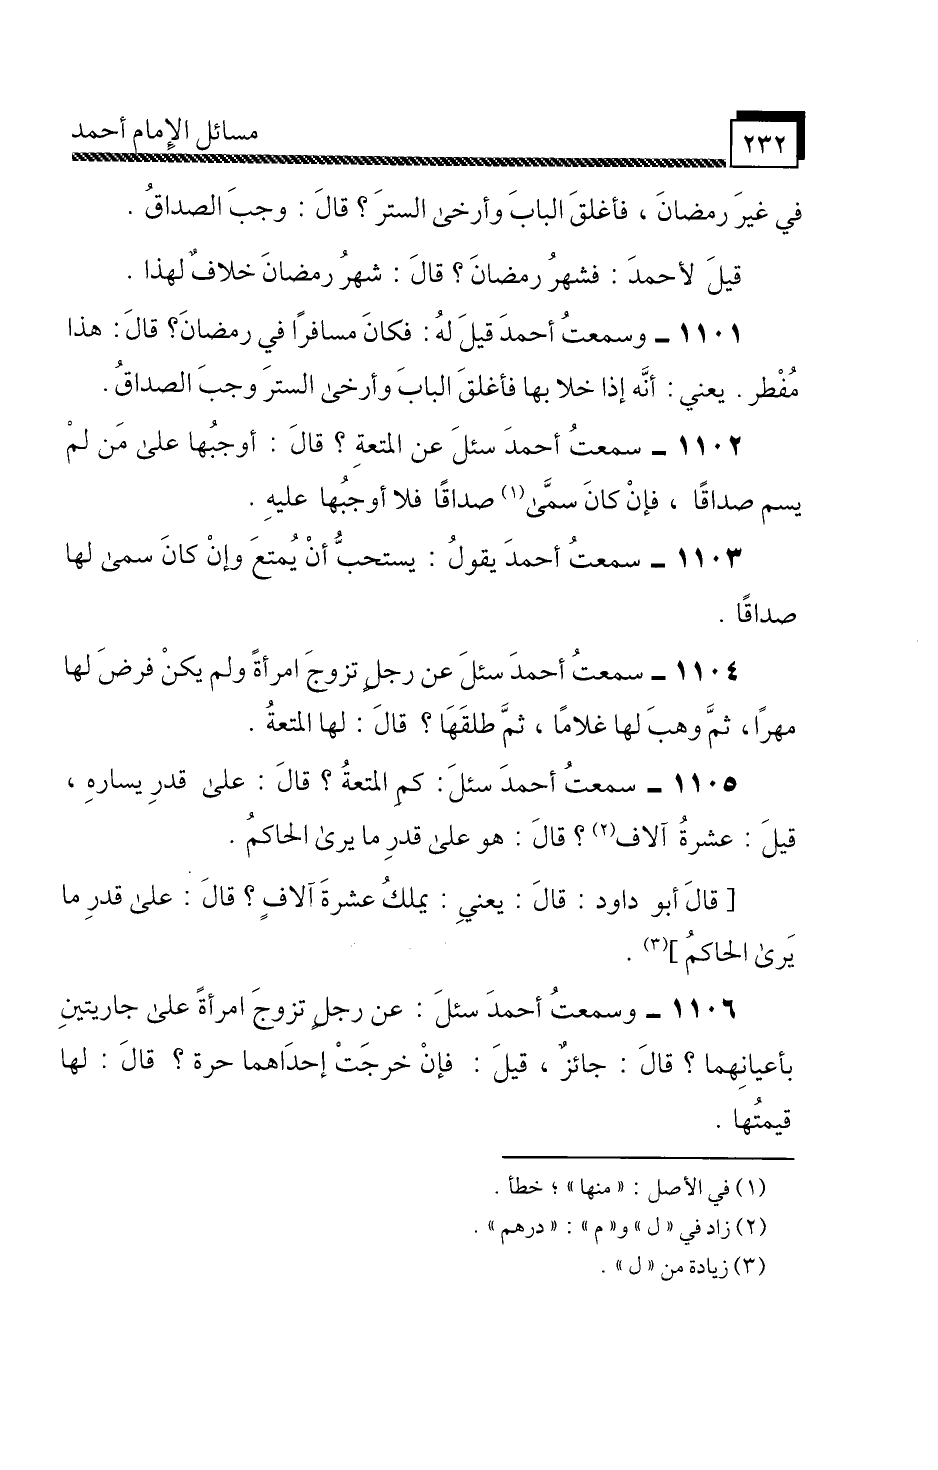 ٢٣٢ مسائل الإمام أحمد
في غيرَ رمضانَ ، فأغلقَ البابَ وأرخىٰ السترَ ؟ قالَ : وجبَ الصداقُ .
قيلَ لأحمدَ : فشهرُ رمضانَ ؟ قالَ : شهرُ رمضانَ خلافٌ لهذا .
١١٠١ ـ وسمعتُ أحمدَ قيلَ لهُ : فكانَ مسافرًا في رمضانَ؟ قالَ : هذا
مُفْطر . يعني : أنَّه إذا خلا بها فأغلقَ البابَ وأرخىٰ السترَ وجبَ الصداقُ .
١١٠٢ ـ سمعتُ أحمدَ سئلَ عن المتعةِ ؟ قالَ : أوجبُها علىٰ مَن لمْ
يسم صداقًا ، فإنْ كانَ سمَّىٰ(١) صداقًا فلا أوجبُها عليهِ .
١١٠٣ ـ سمعتُ أحمدَ يقولُ : يستحبُّ أنْ يُمتعَ وإنْ كانَ سمىٰ لها
صداقًا .
١١٠٤ ـ سمعتُ أحمدَ سئلَ عن رجلٍ تزوجَ امرأةً ولم يكنْ فرضَ لها
مهرًا، ثمَّ وهبَ لها غلامًا ، ثمَّ طلقَهَا ؟ قالَ : لها المتعةُ .
١١٠٥ ـ سمعتُ أحمدَ سئلَ : كمِ المتعةُ ؟ قالَ : علىٰ قدرِ يسارهِ ،
قيلَ : عشرةُ آلاف(٢) ؟ قالَ : هو علىٰ قدرِ ما يرىٰ الحاكمُ .
[ قالَ أبو داود : قالَ : يعني : يملكُ عشرةَ آلافٍ ؟ قالَ : علىٰ قدرِ ما
يَرىٰ الحاكمُ ](٣) .
١١٠٦ ـ وسمعتُ أحمدَ سئلَ : عن رجلٍ تزوجَ امرأةً علىٰ جاريتينِ
بأعيانِهما ؟ قالَ : جائزٌ ، قيلَ : فإنْ خرجَتْ إحدَاهما حرة ؟ قالَ : لها
قيمتُها .
(١) في الأصل : « منها » ؛ خطأ .
(٢) زاد في « ل » و« م » : « درهم » .
(٣) زيادة من « ل » .